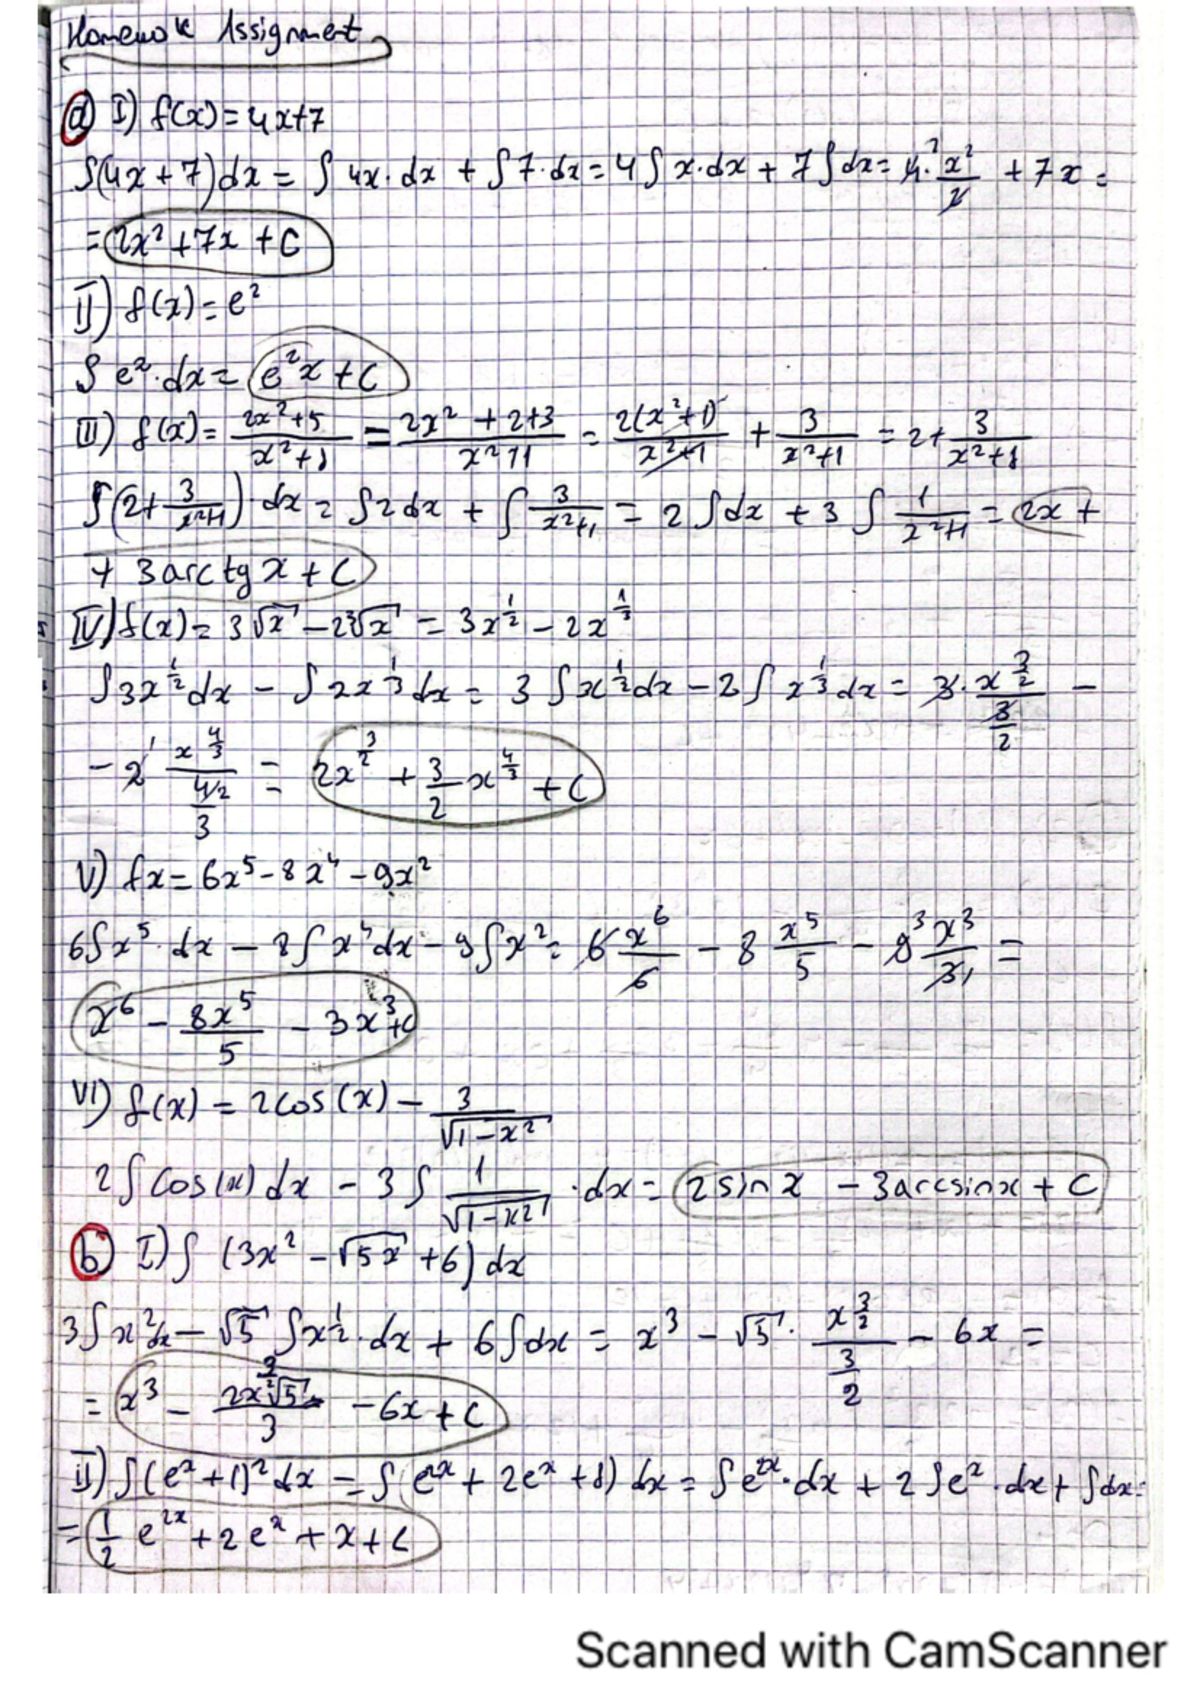 Homework Assignment
a) I) f(x) = 4x+7
∫(4x+7)dx = ∫4x·dx + ∫7·dx = 4∫x·dx + 7∫dx = 4·x²/2 + 7x =
= 2x²+7x+C
II) f(x) = e²
∫e²·dx = e²x+C
III) f(x) = (2x²+5)/(x²+1) = (2x²+2+3)/(x²+1) = 2(x²+1)/(x²+1) + 3/(x²+1) = 2+3/(x²+1)
∫(2+3/(x²+1))·dx = ∫2dx + ∫3/(x²+1) = 2∫dx + 3∫1/(x²+1) = 2x+
+ 3arctgx+C
IV) f(x) = 3√x - 2∛x = 3x^(1/2) - 2x^(1/3)
∫3x^(1/2)dx - ∫2x^(1/3)dx = 3∫x^(1/2)dx - 2∫x^(1/3)dx = 3·x^(3/2)/(3/2) -
- 2 x^(4/3)/(4/3) = 2x^(3/2) + 3/2 x^(4/3) + C
V) fx = 6x⁵-8x⁴-9x²
6∫x⁵·dx - 8∫x⁴dx - 9∫x² = 6 x⁶/6 - 8 x⁵/5 - 9 x³/3 =
x⁶ - 8x⁵/5 - 3x³+C
VI) f(x) = 2cos(x) - 3/√(1-x²)
2∫cos(x)dx - 3∫1/√(1-x²)·dx = 2sinx - 3arcsinx + C
b) I) ∫(3x² - √5x + 6)dx
3∫x²dx - √5∫x^(1/2)·dx + 6∫dx = x³ - √5·x^(3/2)/(3/2) - 6x =
= x³ - 2x^(3/2)√5/3 - 6x+C
II) ∫(e^x+1)²dx = ∫(e^2x + 2e^x + 1)dx = ∫e^2x·dx + 2∫e^x·dx + ∫dx=
= 1/2 e^2x + 2e^x + x + C
Scanned with CamScanner